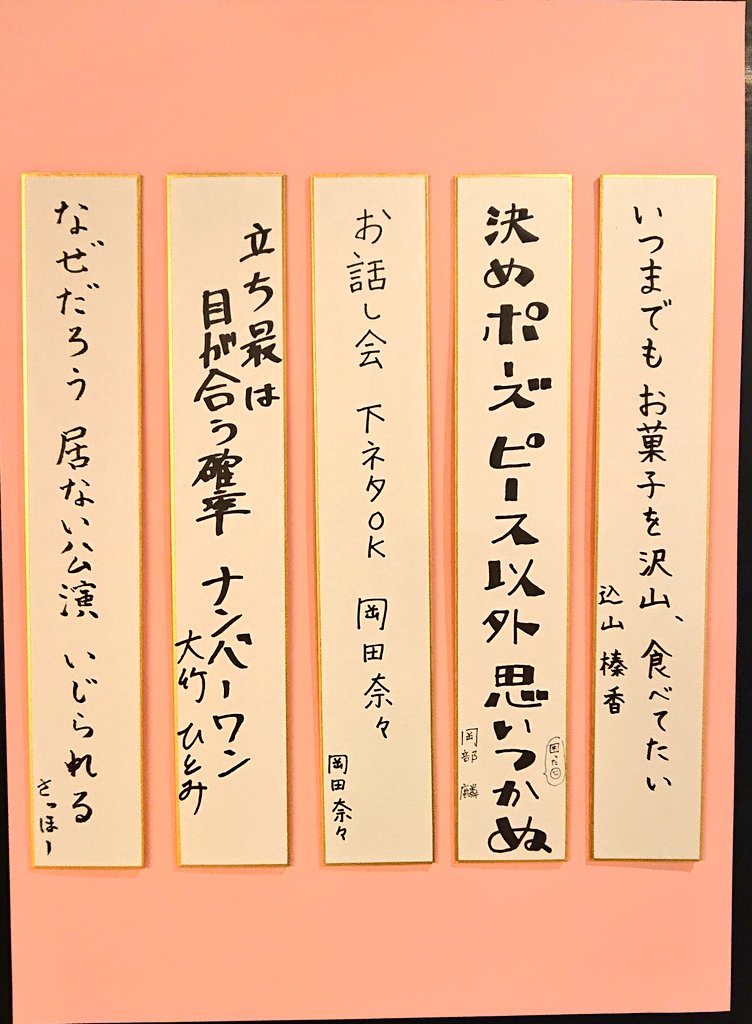 いつまでも お菓子を沢山、食べてたい
込山 榛香
決めポーズ ピース以外 思いつかぬ
困った
岡部 麟
お話し会 下ネタOK 岡田奈々
岡田奈々
立ち最は
目が合う確率 ナンバーワン
大竹 ひとみ
なぜだろう 居ない公演 いじられる
さっほー